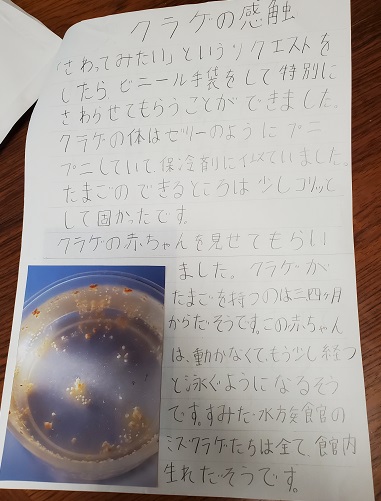 クラゲの感触
「さわってみたい」というリクエストを
したらビニール手袋をして特別に
さわらせてもらうことができました。
クラゲの体はゼリーのようにプニ
プニしていて、保冷剤ににていました。
たまごのできるところは少しコリッと
して固かったです。
クラゲの赤ちゃんを見せてもらい
ました。クラゲが
たまごを持つのは三四ヶ月
からだそうです。この赤ちゃん
は、動かなくて、もう少し経つ
と泳ぐようになるそう
です。すみだ水族館の
ミズクラゲたちは全て、館内
生れだそうです。